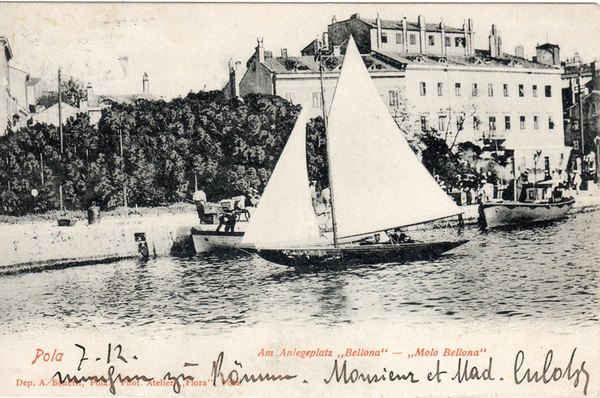 Pola 7. 12. Am Anlegeplatz „Bellona“ — „Molo Bellona“
zu Monsieur et Mad.
Dep. A. Bonetti, Pola. Phot. Atelier „Flora“ Pola